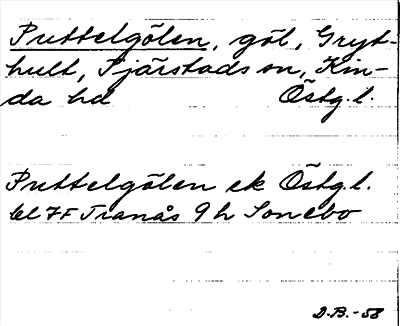 Puttelgölen, göl, Gryt-
hult, Tjärstads sn, Kin-
da hd Östg.l.
Puttelgölen ek Östg.l.
bl 7F Tranås 9 h Sonebo
D.B.-58